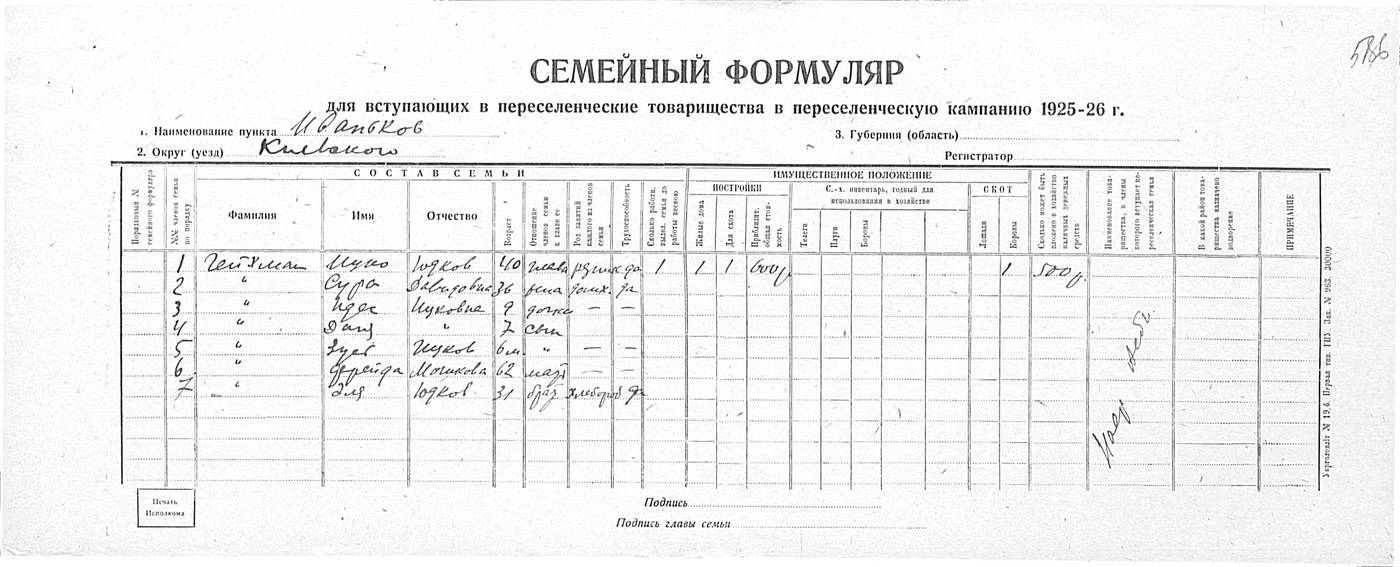 СЕМЕЙНЫЙ ФОРМУЛЯР
для вступающих в переселенческие товарищества в переселенческую кампанию 1925-26 г.
1. Наименование пункта Иваньков
3. Губерния (область)
2. Округ (уезд) Киевского
Регистратор
СОСТАВ СЕМЬИ
ИМУЩЕСТВЕННОЕ ПОЛОЖЕНИЕ
ПОСТРОЙКИ
С.-х. инвентарь, годный для использования в хозяйстве
СКОТ
Порядковый № семейного формуляра
№№ членов семьи по порядку
Фамилия
Имя
Отчество
Возраст
Отношение членов семьи к главе ее
Род занятий каждого из членов семьи
Трудоспособность
Сколько работн. выдел. семья до работы весною
Жилые дома
Для скота
Приблизит. общая стоимость
Телеги
Плуги
Бороны
Лошади
Коровы
Сколько может быть вложено в хозяйство наличных денежных средств
Наименование товарищества, в члены которого вступает переселенческая семья
В какой район товарищества назначено водворение
ПРИМЕЧАНИЕ
1 Гейхман Ицко Юдков 40 глава резник да 1 1 1 600р. 1 500р.
2 " Сура Давидовна 36 жена домх. да
3 " Идес Ицковна 9 дочка — —
4 " " 7 сын
5 " Ицков 6 м. " — —
6 " Фрейда Мошкова 62 мать — —
7 " Эля Юдков 31 брат хлебороб да
Печать Исполкома
Подпись
Подпись главы семьи
Первая тип. ГПУ. Зак. № 963. 30000